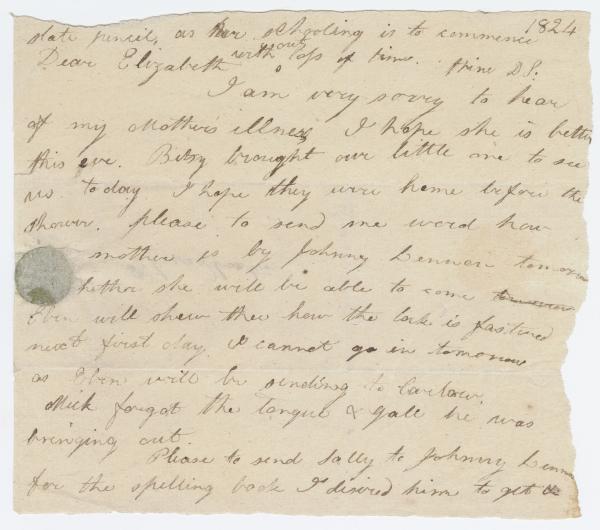 1824
slate pencil, as her schooling is to commence
without loss of time. thine D S.
Dear Elizabeth
I am very sorry to hear
of my Mother's illness I hope she is better
this eve. Bitsy brought our little one to see
us today I hope they were home before the
shower. please to send me word how
mother is by Johnny Lennon tomorrow
hether she will be able to come tomorrow
Eben will shew thee how the lock is fastined
next first day. I cannot go in tomorrow
as Eben will be sending to Carlow.
Mick forgot the tongue & gall he was
bringing out.
Please to send Sally to Johnny Lennon
for the spelling book I disired him to get